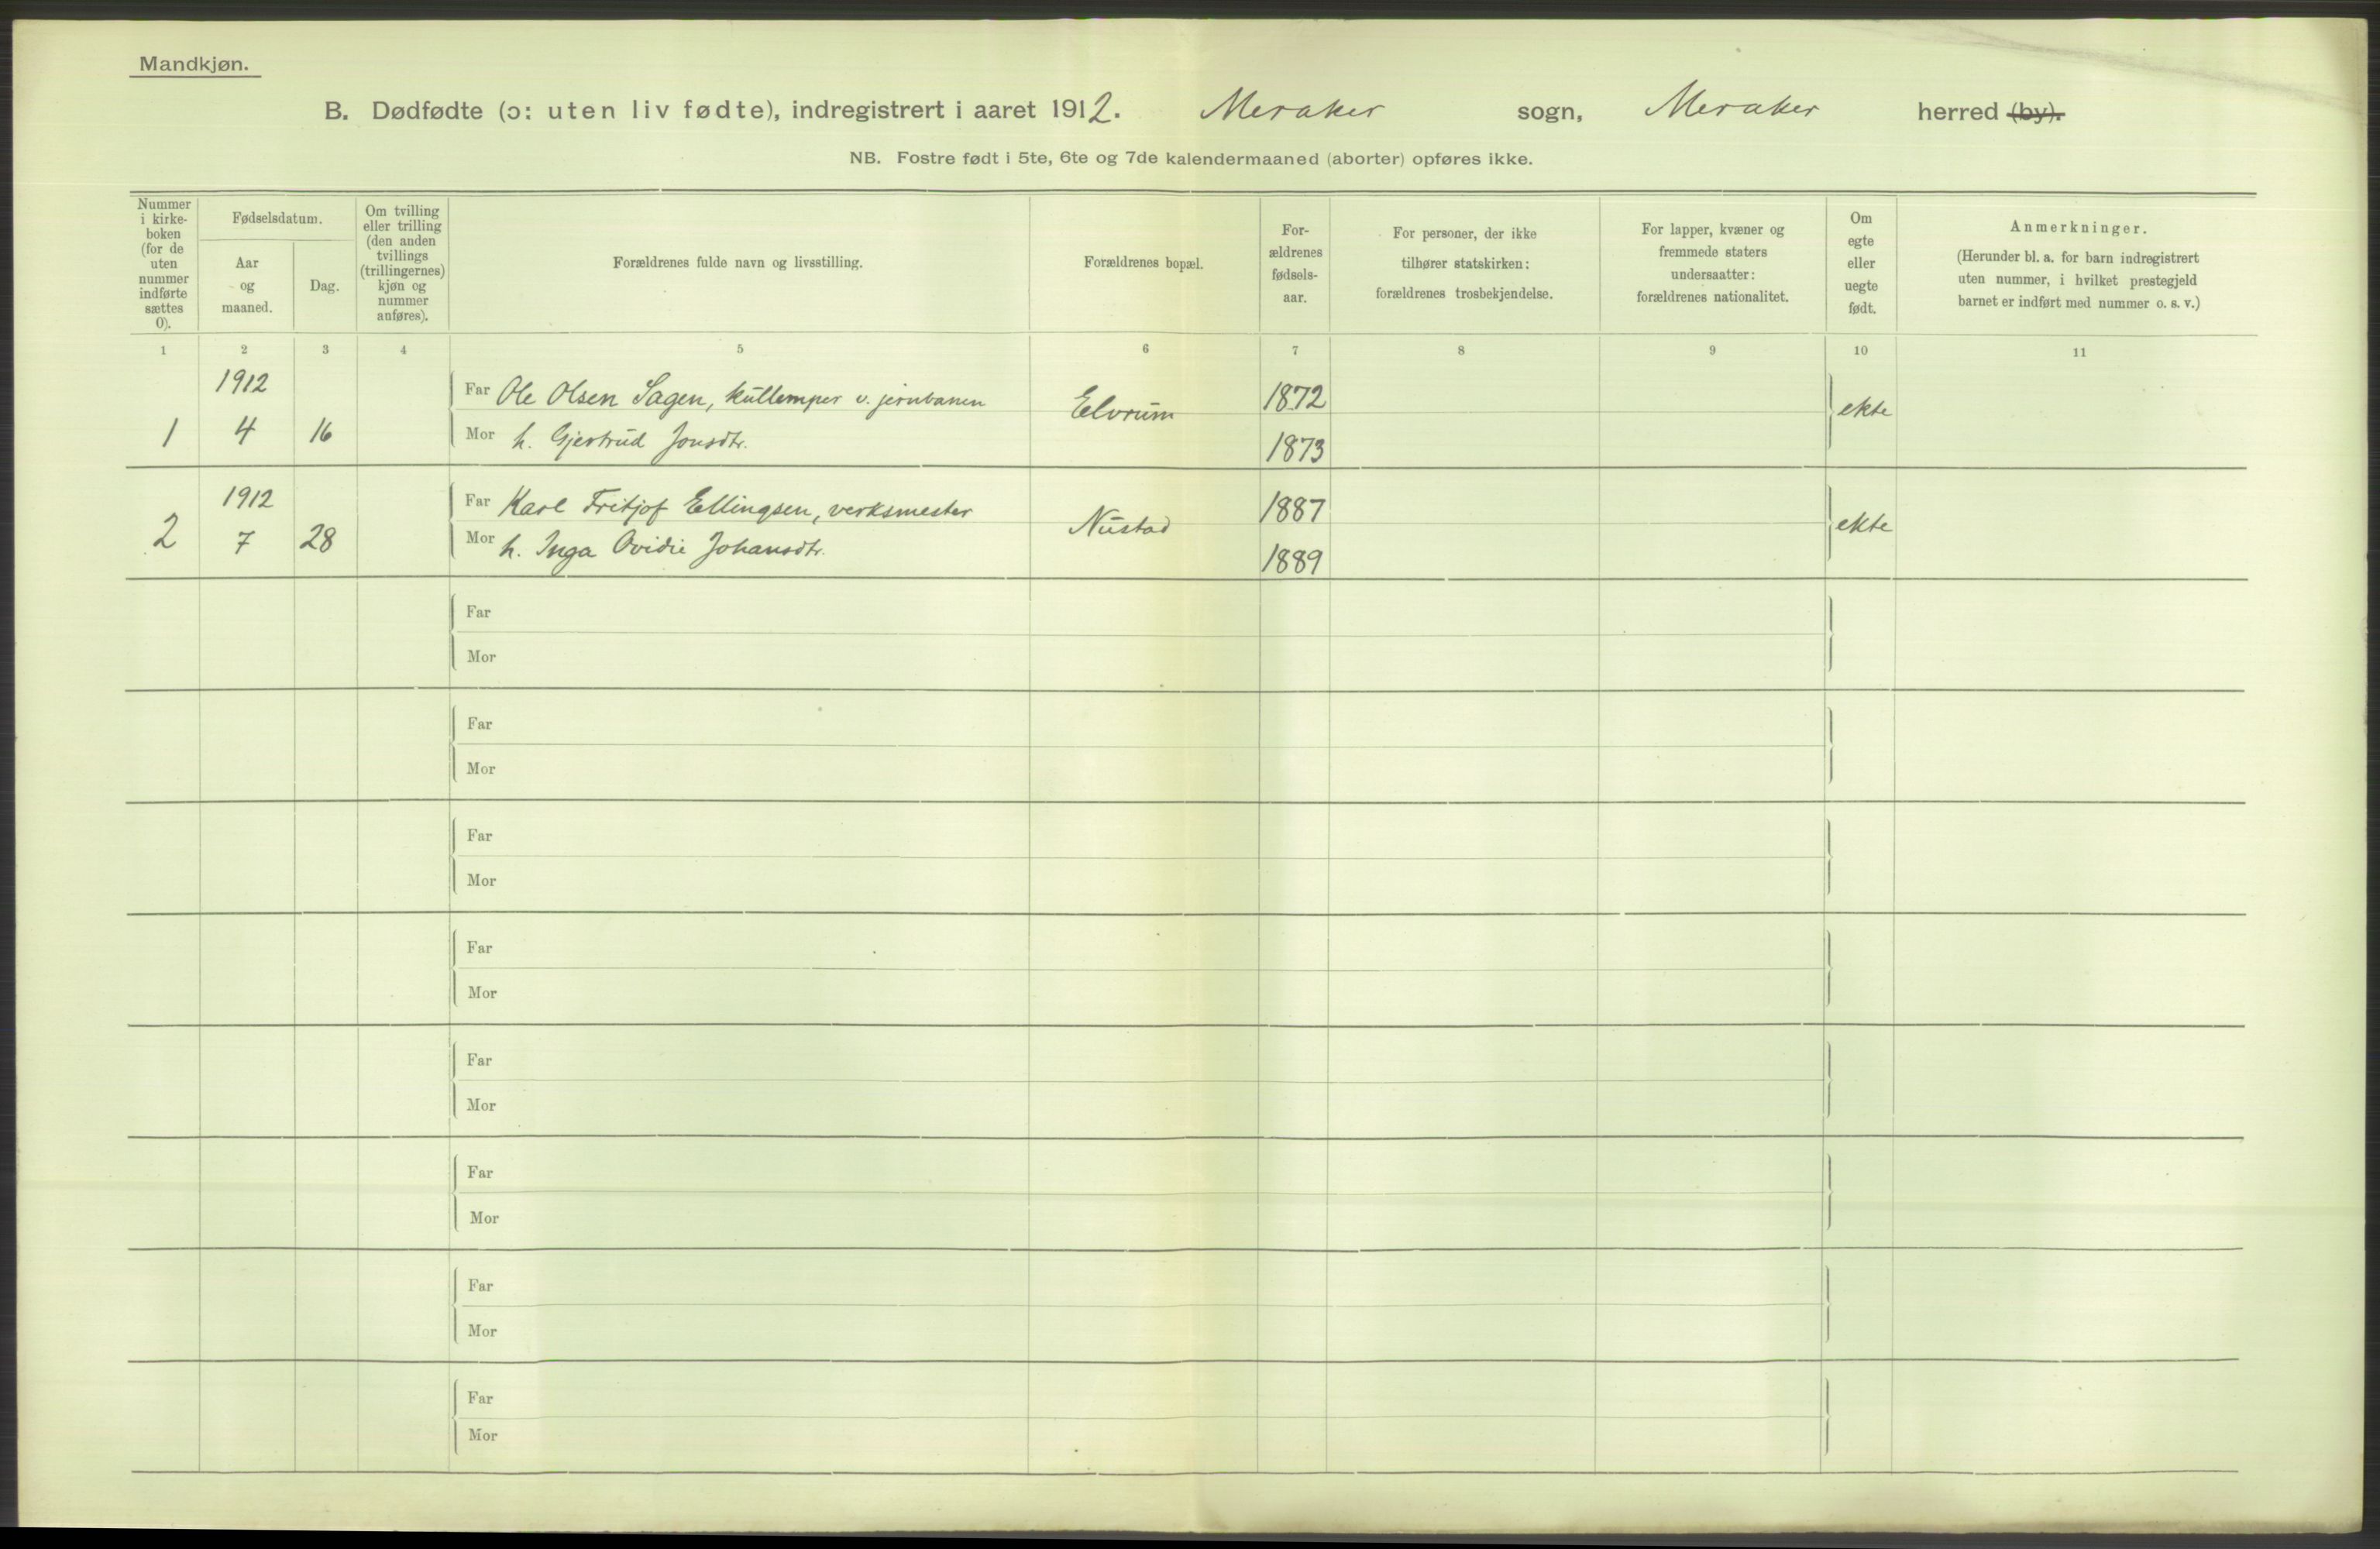 Mandkjøn.
B. Dødfødte (ɔ: uten liv fødte), indregistrert i aaret 1912. Meraker sogn, Meraker herred (by).
NB. Fostre født i 5te, 6te og 7de kalendermaaned (aborter) opføres ikke.
Nummer
i kirke-
boken
(for de
uten
nummer
indførte
sættes
0).
Fødselsdatum.
Aar
og
maaned.
Dag.
Om tvilling
eller trilling
(den anden
tvillings
(trillingernes)
kjøn og
nummer
anføres).
Forældrenes fulde navn og livsstilling.
Forældrenes bopæl.
For-
ældrenes
fødsels-
aar.
For personer, der ikke
tilhører statskirken:
forældrenes trosbekjendelse.
For lapper, kvæner og
fremmede staters
undersaatter:
forældrenes nationalitet.
Om
egte
eller
uegte
født.
Anmerkninger.
(Herunder bl. a. for barn indregistrert
uten nummer, i hvilket prestegjeld
barnet er indført med nummer o. s. v.)
1 2 3 4 5 6 7 8 9 10 11
1912
Far Ole Olsen Sagen, kullemper v. jernbanen Elvrum 1872 ekte
1 4 16 Mor h. Gjertrud Jonsdtr. 1873
1912
Far Karl Fritjof Ellingsen, verksmester Nustad 1887 ekte
2 7 28 Mor h. Inga Ovidie Johansdtr. 1889
Far
Mor
Far
Mor
Far
Mor
Far
Mor
Far
Mor
Far
Mor
Far
Mor
Far
Mor